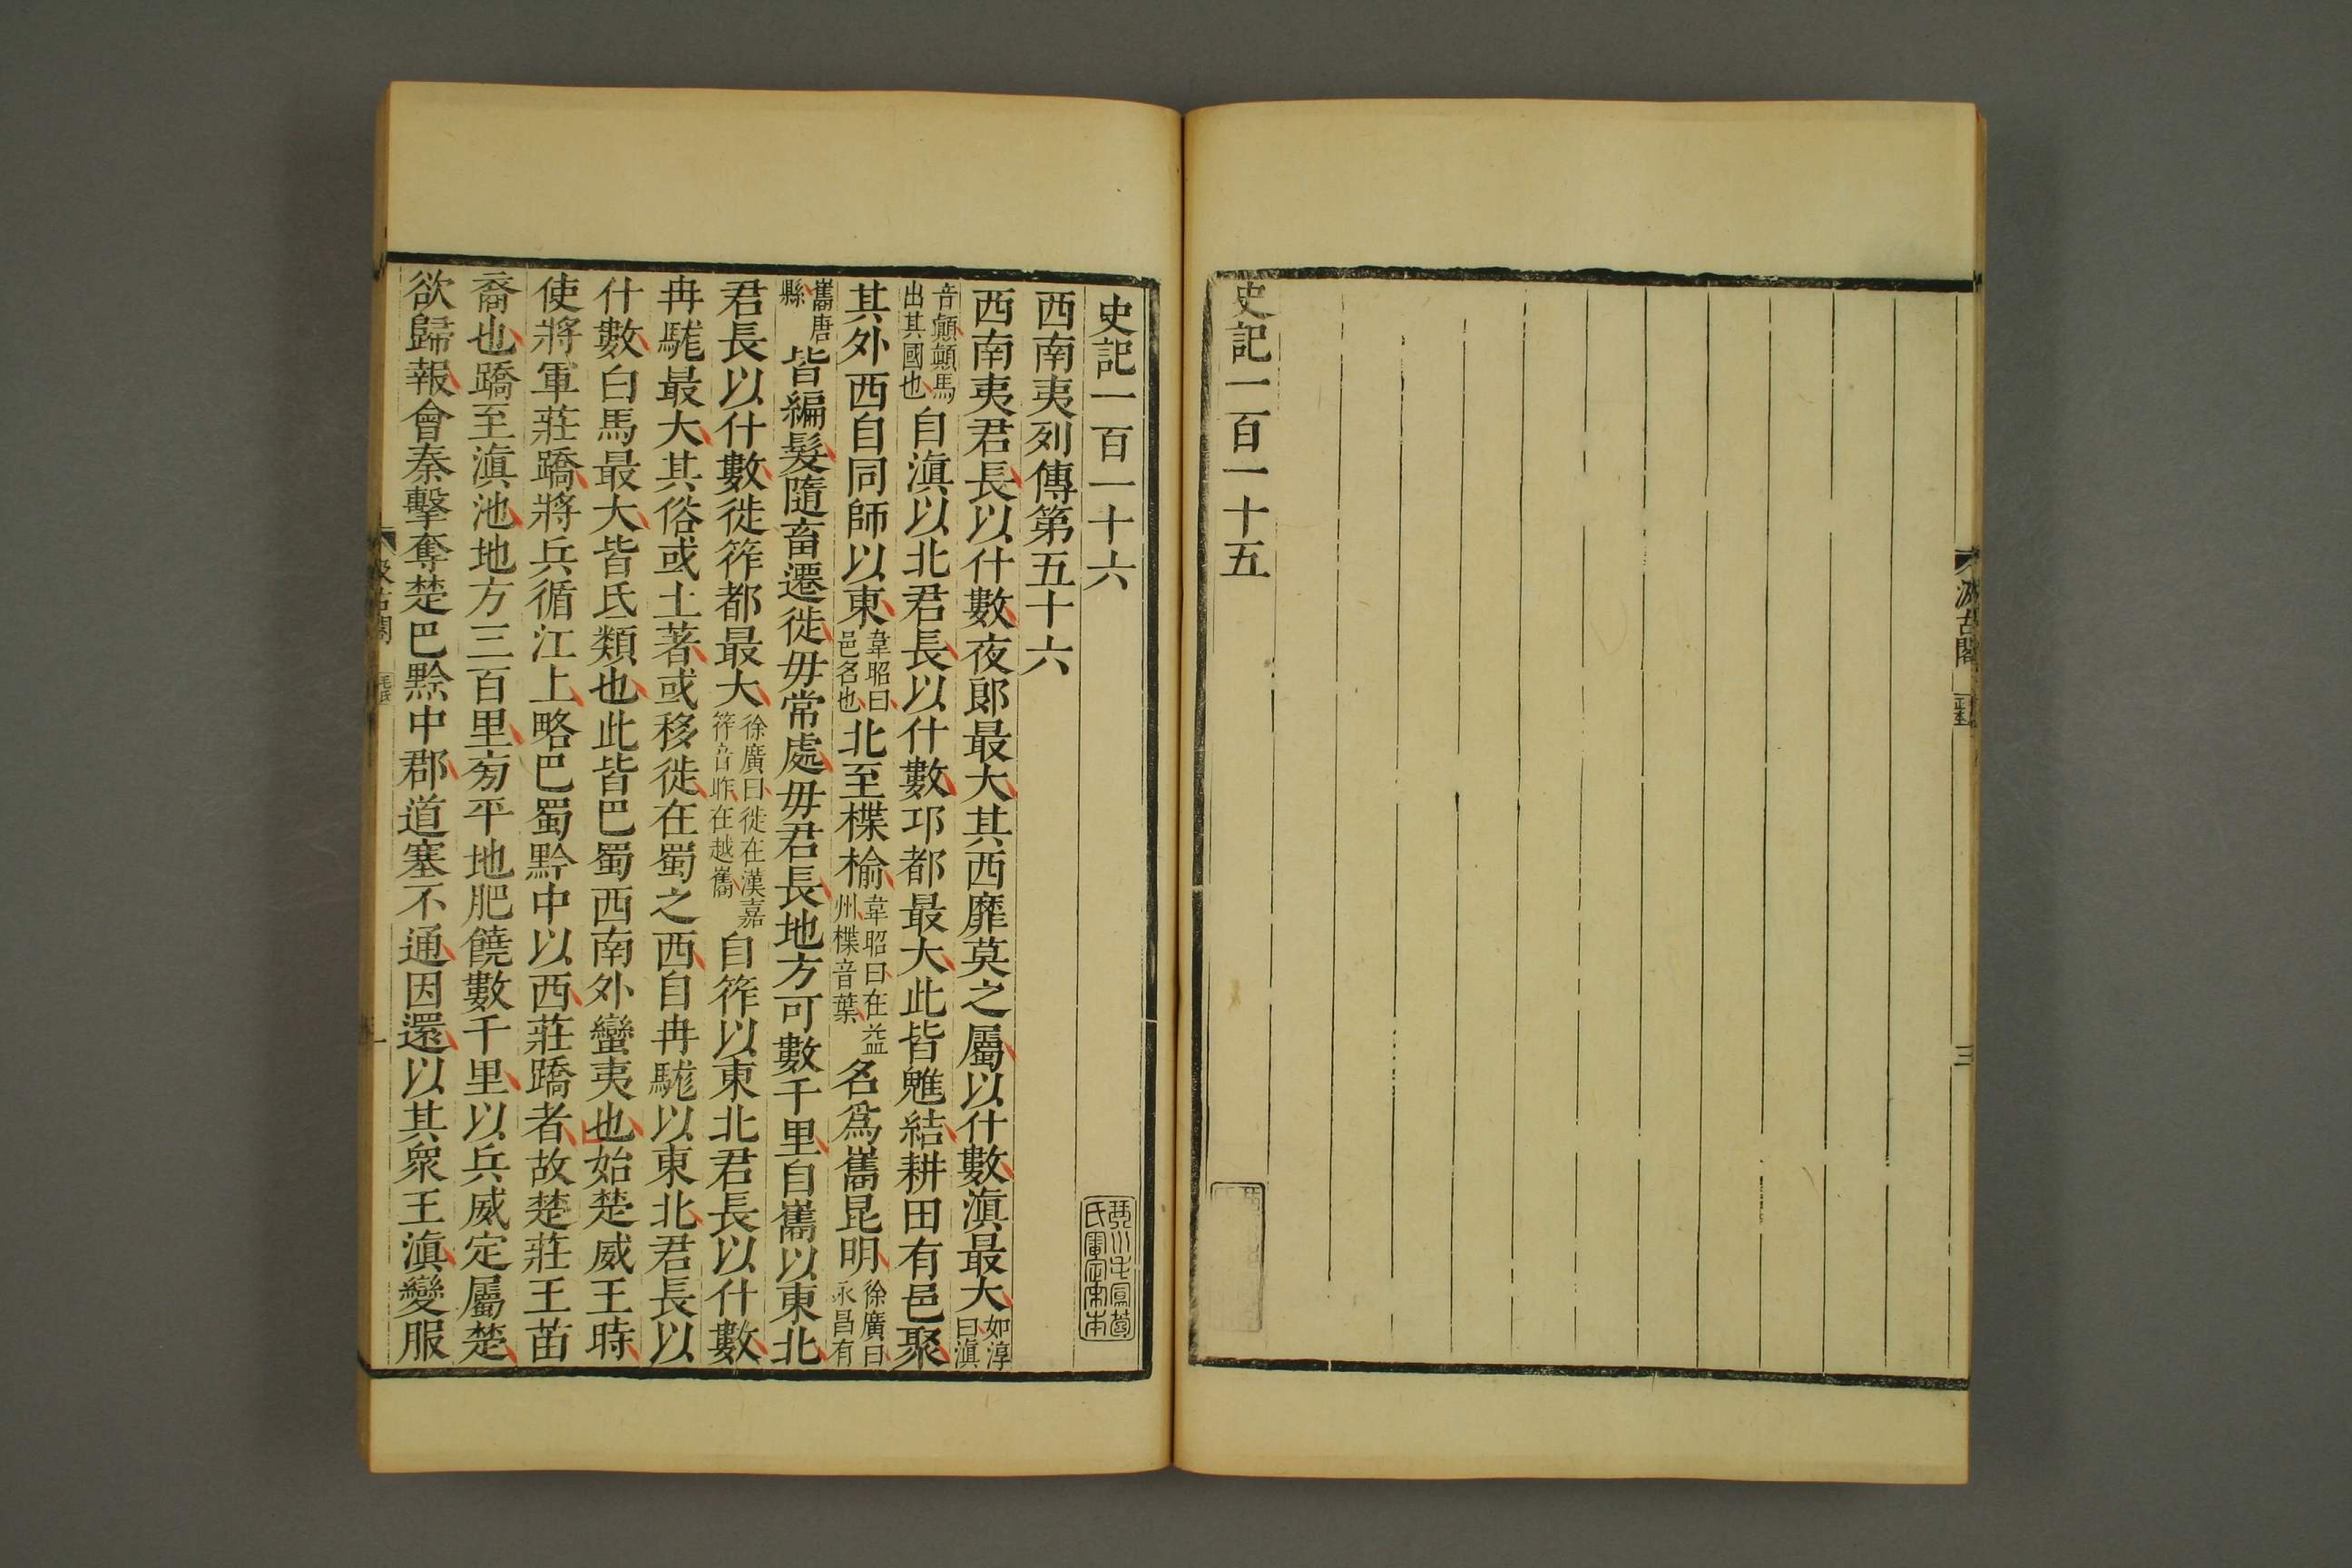 史記一百一十五
史記一百一十六
西南夷列傳第五十六
西南夷君長以什數夜郎最大其西靡莫之屬以什數滇最大如淳曰滇
音顚顚馬出其國也自滇以北君長以什數邛都最大此皆魋結耕田有邑聚
其外西自同師以東韋昭曰邑名也北至楪榆韋昭曰在益州楪音葉名爲嶲昆明徐廣曰永昌有
嶲唐縣皆編髮隨畜遷徙毋常處毋君長地方可數千里自嶲以東北
君長以什數徙筰都最大徐廣曰徙在漢嘉筰音昨在越嶲自筰以東北君長以什數
冉駹最大其俗或土著或移徙在蜀之西自冉駹以東北君長以
什數白馬最大皆氐類也此皆巴蜀西南外蠻夷也始楚威王時
使將軍莊蹻將兵循江上略巴蜀黔中以西莊蹻者故楚莊王苗
裔也蹻至滇池地方三百里旁平地肥饒數千里以兵威定屬楚
欲歸報會秦擊奪楚巴黔中郡道塞不通因還以其衆王滇變服